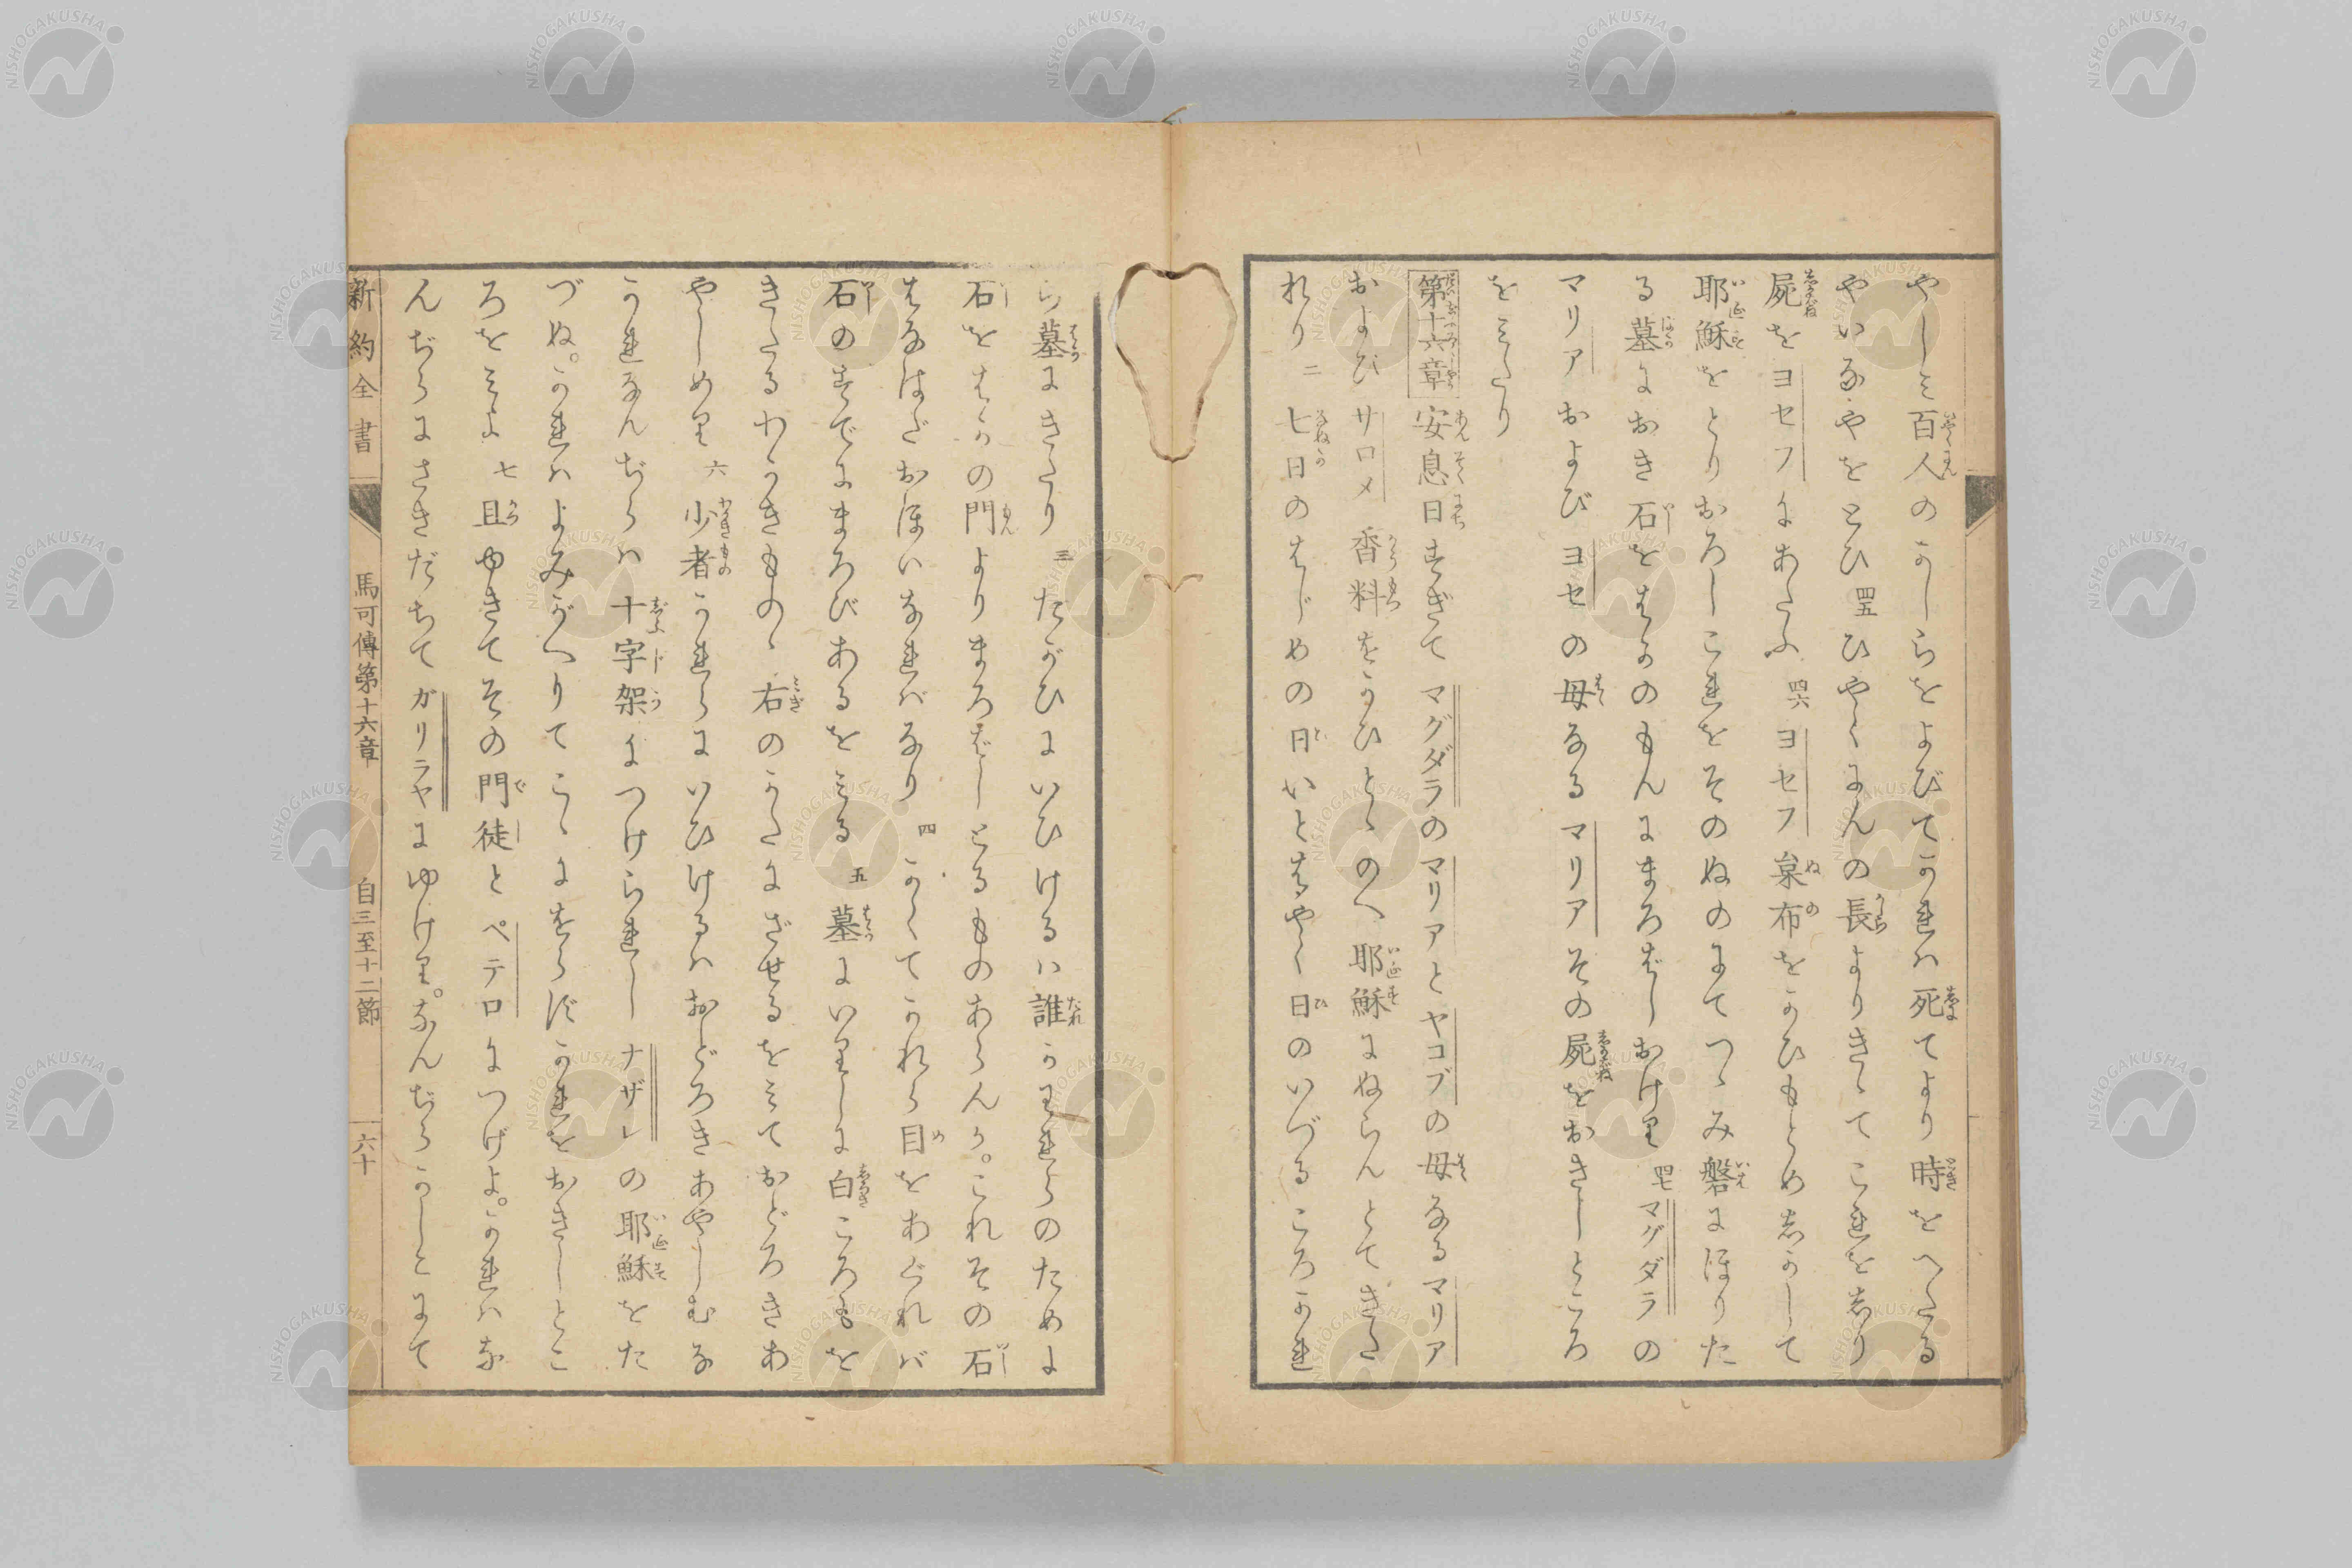 やしミ百人のかしらをよびてかれハ死てより時をへたる
やいなやをとひ 四五 ひやくにんの長よりきゝてこれを志り
屍をヨセフにあたふ 四六 ヨセフ枲布をかひもとめ志かして
耶穌をとりおろしこれをそのぬのにてつゝみ磐にほりた
る墓におき石をはかのもんにまろばしおけり 四七 マグダラの
マリアおよびヨセの母なるマリアその屍をおきしところ
をミたり
第十六章 安息日すぎてマグダラのマリアとヤコブの母なるマリア
およびサロメ香料をかひとゝのへ耶穌にぬらんとてきた
れり 二 七日のはじめの日いとはやく日のいづるころかれ
ら墓にきたり 三 たがひにいひけるハ誰かわれらのために
石をはかの門よりまろばしとるものあらんか。これその石
はなはだおほいなれバなり 四 かくてかれら目をあぐれバ
石のすでにまろびあるをミる 五 墓にいりしに白ころもを
きたるわかきものゝ右のかたにざせるをミておどろきあ
やしめり 六 少者かれらにいひけるハおどろきあやしむな
かれなんぢらハ十字架につけられしナザレの耶穌をた
づぬ。かれハよみがへりてこゝにをらずかれをおきしとこ
ろをミよ 七 且ゆきてその門徒とペテロにつげよ。かれハな
んぢらにさきだちてガリラヤにゆけり。なんぢらかしこにて
新約全書 馬可傳第十六章 自三至十二節 六十